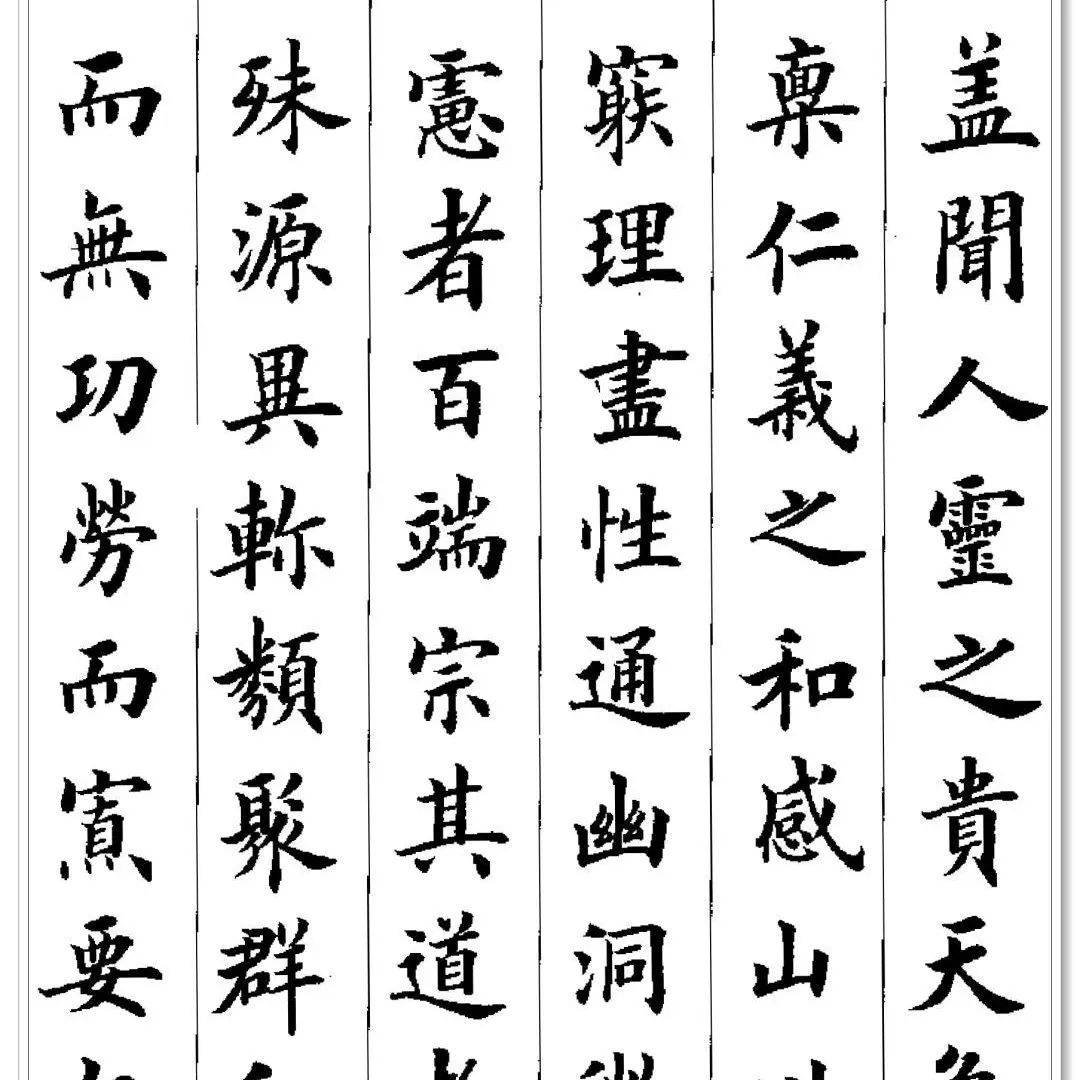 盖聞人靈之貴天
稟仁義之和感山
窮理盡性通幽洞
慮者百端宗其道
殊源異軫類聚群
而無功勞而寡要